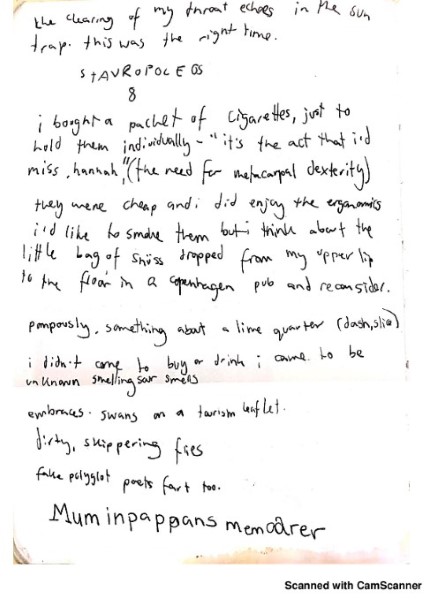 the clearing of my throat echoes in the sun
trap. this was the right time.
STAVROPOLEOS
8
i bought a packet of cigarettes, just to
hold them individually - "it's the act that i'd
miss, hannah," (the need for metacarpal dexterity)
they were cheap and i did enjoy the ergonomics
i'd like to smoke them but i think about the
little bag of snüss dropped from my upper lip
to the floor in a copenhagen pub and reconsider.
pompously, something about a lime quarter (dash, slice)
i didn't come to buy or drink i came to be
unknown smelling sour smells
embraces. swans on a tourism leaflet.
dirty, skippering
fake polyglot poets fart too.
Muminpappans memoarer
Scanned with CamScanner